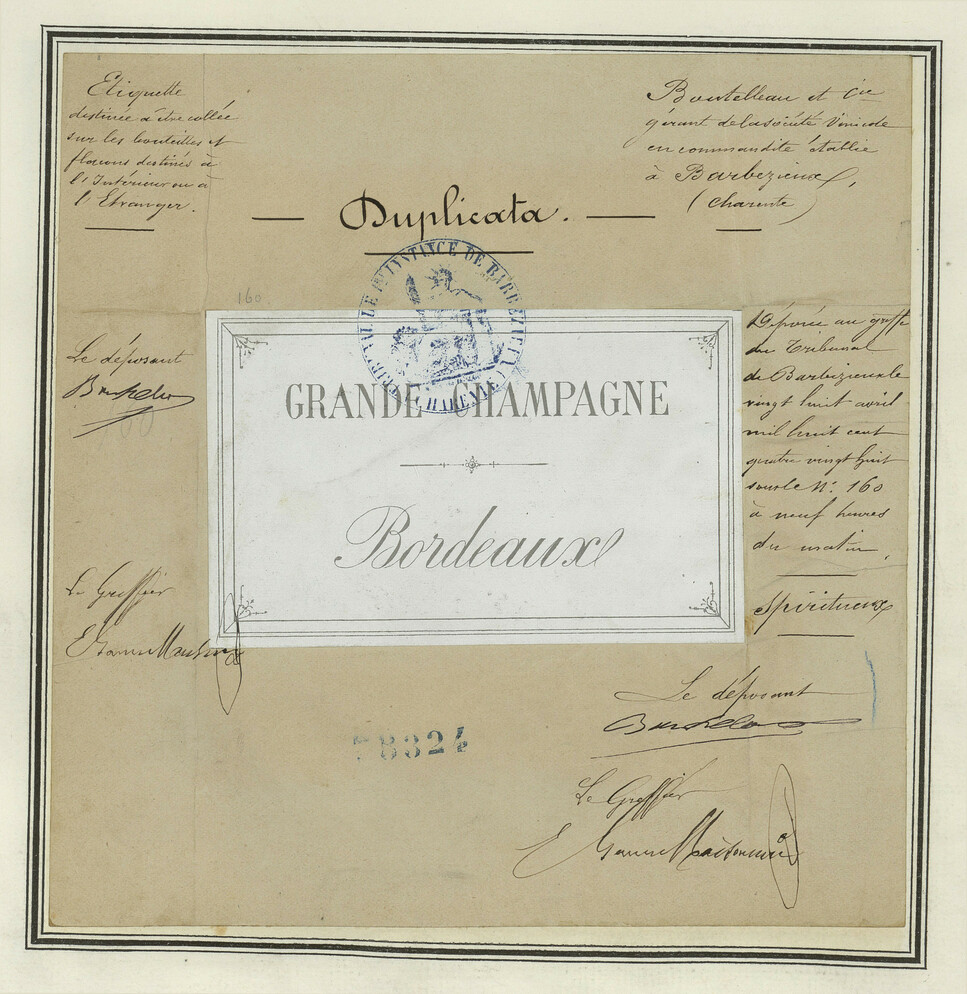 Etiquette
destinée à être collée
sur les bouteilles et
flacons destinés à
l'Intérieur ou à
l'Etranger.
Boutelleau et Cie
gérant de la société Vinicole
en commandite établie
à Barbezieux,
(Charente)
Duplicata.
TRIBUNAL DE 1ère INSTANCE DE BARBEZIEUX
(CHARENTE)
160
GRANDE CHAMPAGNE
Bordeaux
Le déposant
60
Le Greffier
Déposée au greffe
du Tribunal
de Barbezieux le
vingt huit avril
mil huit cent
quatre vingt huit
sous le N° 160
à neuf heures
du matin.
Spiritueux
Le déposant
78324
Le Greffier